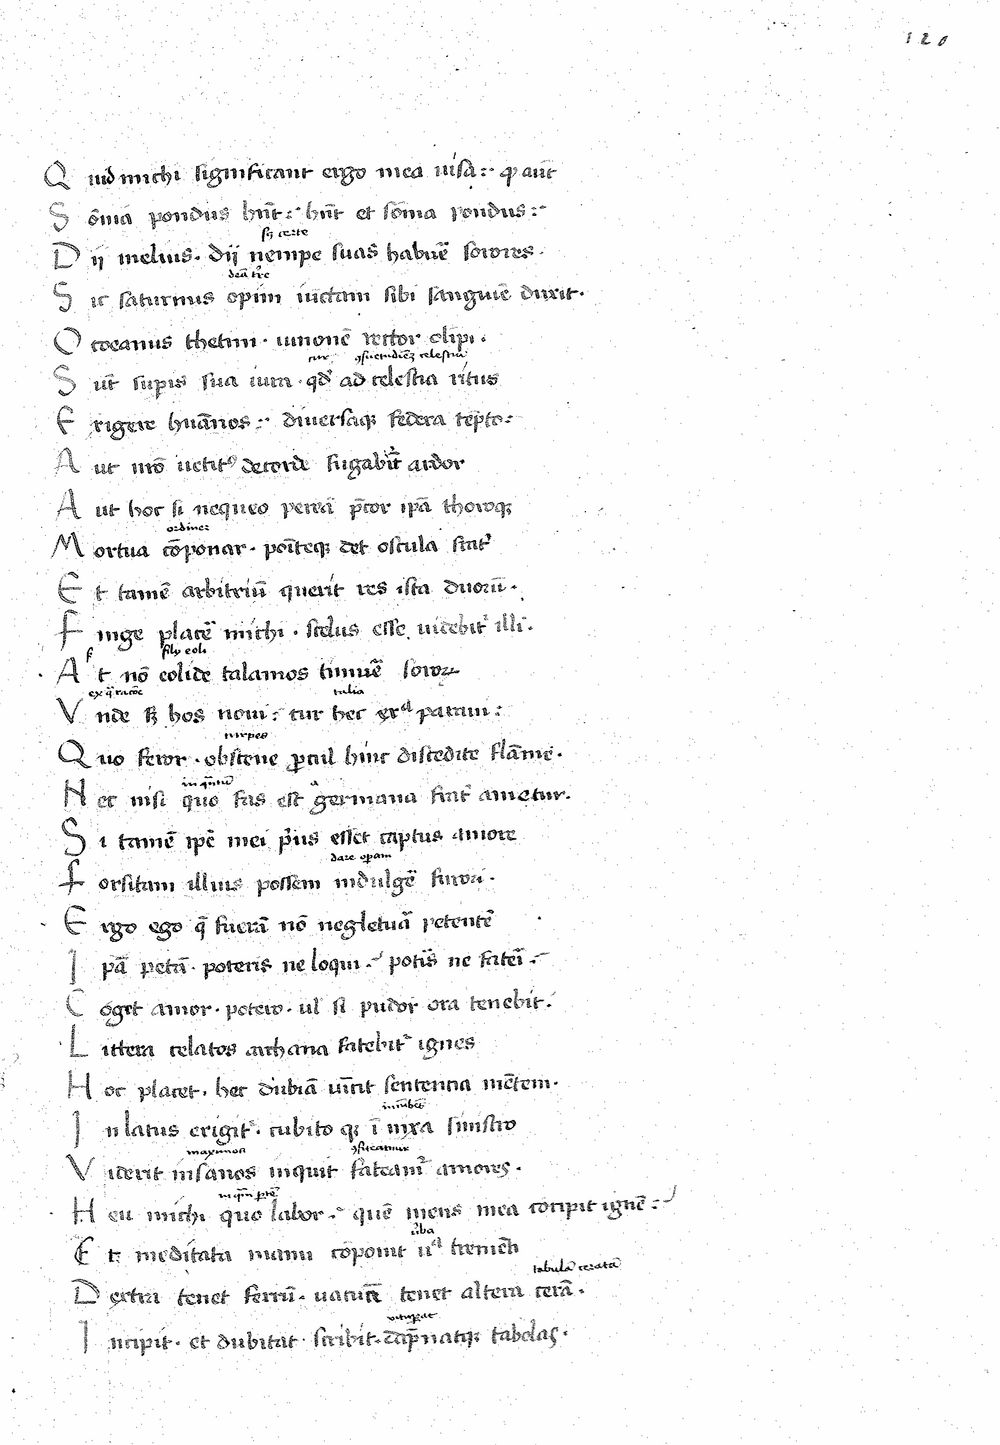 120
Quid michi significant ergo mea uisa :· qͥ aut̄
Sōnia pondus hn̄t :· hn̄t et sōnia pondus :·
sꝫ certe
Dij melius · dij nempe suas habuē sorores ·
Sic saturnus opim iunctam sibi sanguinē duxit ·
Occeanus thetim · iunonē rector olīpi ·
cur ꝯsuetudinez celestia
Sūt supis sua iura · qd̕ ad celestia ritus
Erigere huānos :· diuersaqꝫ federa tēpto :·
Aut nr̄o uetitꝰ de corde fugabit᷑ ardor
Aut hoc si nequeo pereā p̄cor ipā thoroqꝫ
ordiner
Mortua cōponar · poīteqꝫ det oscula frat᷑
Et tamē arbitriū querit res ista duorū ·
Finge placē michi · scelus esse uidebit᷑ illi ·
filij eoli
At nō eolide talamos timuē soroꝝ
talia
Vnde sꝫ hos noui : cur hec exᵃ paraui :
turpes
Quo feror · obscene procul hīnc discedite flāme ·
Hec nisi quo fas est germana frat᷑ ametur ·
Si tamē ipē mei pͥus esset captus amore
dare opam
Forsitam illius possem indulgē furori ·
Ergo ego q̄ fuerā nō neglectuā petentē
Ipā petā · poteris ne loqui · potis ne fateri ·
Coget amor · potero · ul̕ si pudor ora tenebit ·
Littera celatos archana fatebit᷑ ignes
Hoc placet , hec dubiā uīcit sententia mētem ·
In latus erigit᷑ · cubito qꝫ ī nixa sinistro
Viderit insanos inquit fateam᷑ amores ·
Heu michi quo labor · quē mens mea concipit ignē :·
u̕ba
Et meditata manu cōponit uᵃ tremēti
tabulā ceratā
Dextra tenet ferrū · uacuā tenet altera cerā ·
uituperat
Incipit · et dubitat · scribit · dāpnatqꝫ tabelas ·